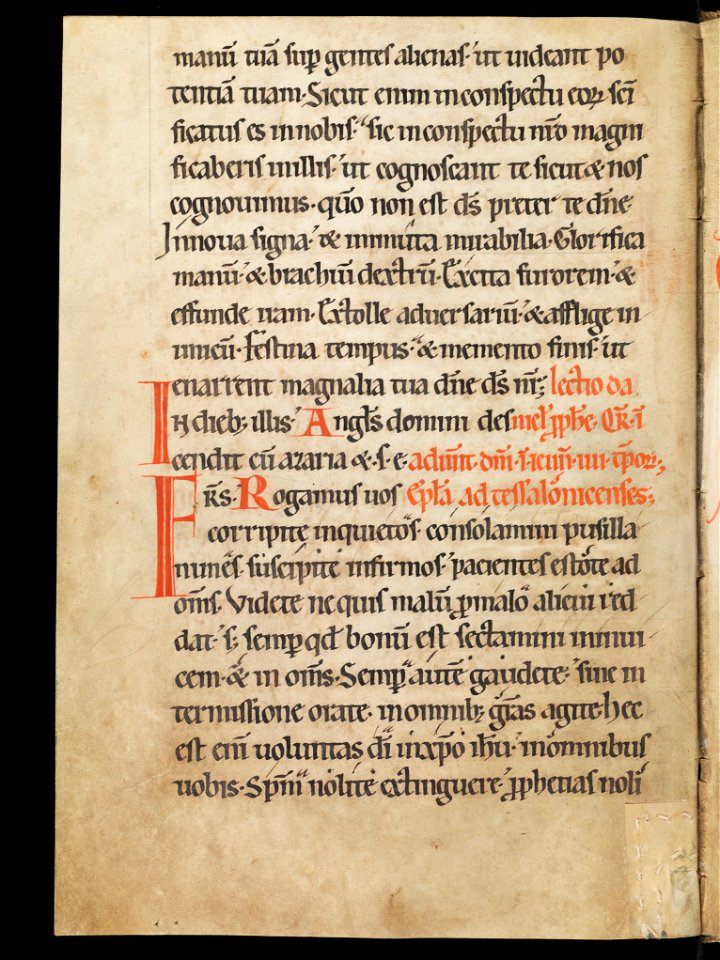 manū tuā sup̱ gentes alienas· ut uideant po
tentiā tuam· Sicut enim inconspectu eoꝝ sc̄i
ficatus es innobis· sic inconspectu nr̄o magni
ficaberis inillis· ut cognoscant te sicut & nos
cognouimus· quō non est d̄s preter te dn̄e
Innoua signa· & inmuta mirabilia· Glorifica
manū· & brachiū dextrū· Excita furorem· &
effunde iram· Extolle aduersariū· & afflige in-
imicū· Festina tempus· & memento finis· ut
enarrent magnalia tua dn̄e d̄s nr̄; lectio da
In dieb; illis· Angl̄s domini des nielꝓph̄e· Q̄R· ī
cendit cū azaria &·s·e· adiunt· dn̄i·ī·ieiun̄·iiii·tp̄or·;
FR̄S· Rogamus uos Epl̄a ad tessalōnicenses;
corripite inquietos· consolamini pusilla
nimes· suscipite infirmos· pacientes estote ad
om̄s· Videte ne quis malū ꝓmalo alicui red
dat· s; semp̱ qd̄ bonū est sectamini inuui-
cem· & in om̄s· Semp̱ autē gaudete· sine in
termissione orate· inomnib; gr̄as agite· hec
est eni̅ uoluntas dī inxp̄o ih̄u· inomnibus
uobis· Sp̄m̄ nolite extinguere· ꝓphetias noli